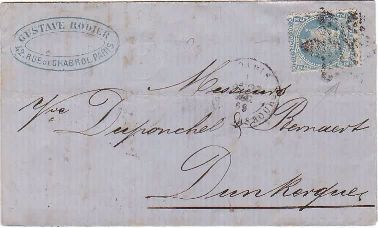 GUSTAVE RODIER
42, RUE DE CHABROL, PARIS
PARIS
Messieurs
Vve Duponchel & Bernaert
Dunkerque